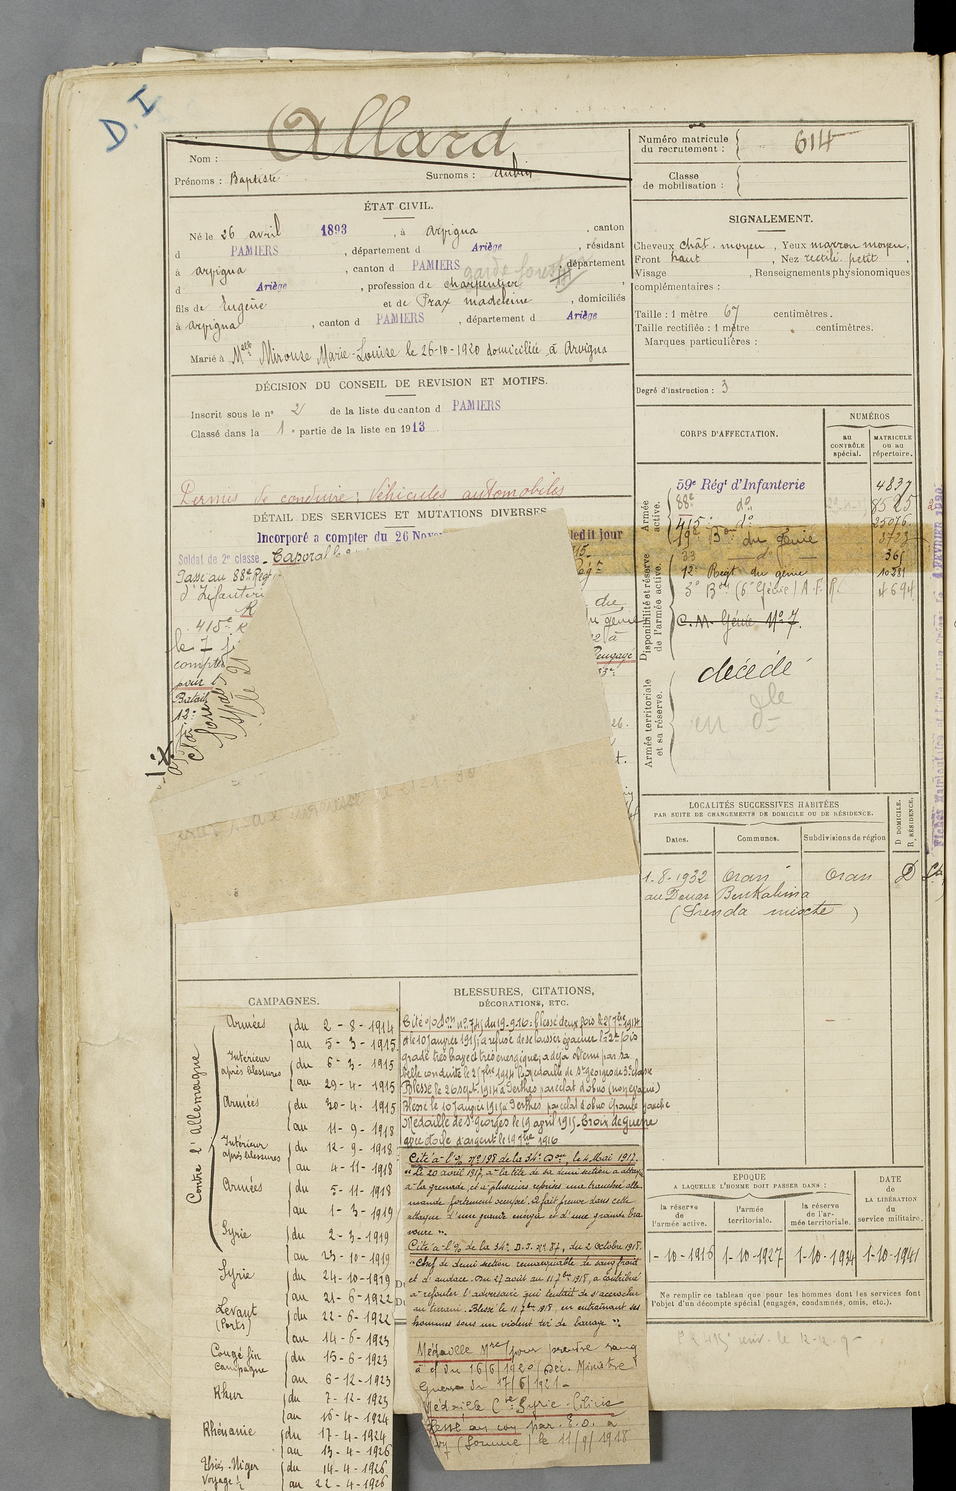 D.I
Nom : Allard
Prénoms : Baptiste Surnoms : Aubin
ÉTAT CIVIL.
Né le 26 avril 1893, à Arvigna, canton
d PAMIERS, département d Ariège, résidant
à Arvigna, canton d PAMIERS, département
d Ariège, profession de charpentier
garde forestier
fils de Eugène et de Prax madeleine, domiciliés
à Arvigna, canton d PAMIERS, département d Ariège
Marié à Melle Mirouse Marie-Louise le 26-10-1920 domiciliée à Arvigna
DÉCISION DU CONSEIL DE REVISION ET MOTIFS.
Inscrit sous le n° 2 de la liste du canton d PAMIERS
Classé dans la 1e partie de la liste en 1913
Permis de conduire : Véhicules automobiles
DÉTAIL DES SERVICES ET MUTATIONS DIVERSES
Incorporé a compter du 26 Nov
ledit jour
Soldat de 2e classe. Caporal le
Passé au 88e Régt
d'Infanterie
415e
le 7
compter
pour
Batail
13e
Numéro matricule
du recrutement : 614
Classe
de mobilisation :
SIGNALEMENT.
Cheveux chât. moyen, Yeux marron moyen,
Front haut, Nez rectil. petit,
Visage , Renseignements physionomiques
complémentaires :
Taille : 1 mètre 67 centimètres.
Taille rectifiée : 1 mètre centimètres.
Marques particulières :
Degré d'instruction : 3
CORPS D'AFFECTATION.
NUMÉROS
au
CONTRÔLE
spécial.
MATRICULE
ou au
répertoire.
Armée
active.
59e Régt d'Infanterie 4837
88e do 8525
415e do 25076
19e Bon du génie 8728
Disponibilité et réserve
de l'armée active.
33 do 361
12e Régt du génie 10281
C.M. Génie N° 7.
Armée territoriale
et sa réserve.
décédé
LOCALITÉS SUCCESSIVES HABITÉES
PAR SUITE DE CHANGEMENTS DE DOMICILE OU DE RÉSIDENCE.
Dates. Communes. Subdivisions de région
D. DOMICILE.
R. RÉSIDENCE.
1-8-1932 Oran Oran D
au Douar Benkalima
(Frenda mixte)
CAMPAGNES.
Contre l'Allemagne
Armées du 2-8-1914
au 5-3-1915
Intérieur
après blessures du 6-3-1915
au 29-4-1915
Armées du 30-4-1915
au 11-9-1918
Intérieur
après blessures du 12-9-1918
au 4-11-1918
Armées du 5-11-1918
au 1-3-1919
Syrie du 2-3-1919
au 23-10-1919
Syrie du 24-10-1919
au 21-6-1922
Levant
(Ports) du 22-6-1922
au 14-6-1923
Congé fin
campagne du 15-6-1923
au 6-12-1923
Rhur du 7-12-1923
au 16-4-1924
Rhénanie du 17-4-1924
au 13-4-1926
du 14-4-1926
au 22-4-1926
BLESSURES, CITATIONS,
DÉCORATIONS, ETC.
Cité o/don n° 745 du 19-9-16 : blessé deux fois le 26 7bre 1914
et le 10 Janvier 1915, a refusé de se laisser évacuer la 2e fois
gradé très brave et très énergique, a déjà obtenu par sa
belle conduite le 26 7bre 1914 la médaille de St Georges de 3e classe
Blessé le 26 sept. 1914 à Perthes par éclat d'obus (non évacué)
Blessé le 10 Janvier 1915 à Perthes par éclat d'obus
Médaille de St Georges le 19 avril 1915. Croix de guerre
avec étoile d'argent le 19 7bre 1916
Cité à l'o/ n° 198 de la 34e Don, le 4 Mai 1917.
"Le 20 avril 1917, à la tête de sa demi section a attaqué
à la grenade, et à plusieurs reprises une tranchée alle
mande fortement occupée. A fait preuve dans cette
attaque d'une grande énergie et d'une grande bra
voure".
Cité à l'o/ de la 34e D.I. n° 87, du 2 octobre 1918.
"Chef de demi section remarquable de sang froid
et d'audace. Du 27 août au 11 7bre 1918, a contribué
à refouler l'adversaire qui tentait de s'accrocher
au terrain. Blessé le 11 7bre 1918, en entraînant ses
hommes sous un violent tir de barrage".
Médaille Mre pour prendre rang
à c/ du 16/6/1920 (Déc. Ministre
Guerre du 17/6/1921 -
Médaille Cve Syrie-Cilicie
Blessé au cou par E.O. à
(Somme) le 11/9/1918
EPOQUE
A LAQUELLE L'HOMME DOIT PASSER DANS :
la réserve
de
l'armée active.
l'armée
territoriale.
la réserve
de l'ar-
mée territoriale.
DATE
de la
LIBÉRATION
du
service militaire.
1-10-1916 1-10-1927 1-10-1934 1-10-1941
Ne remplir ce tableau que pour les hommes dont les services font
l'objet d'un décompte spécial (engagés, condamnés, omis, etc.).